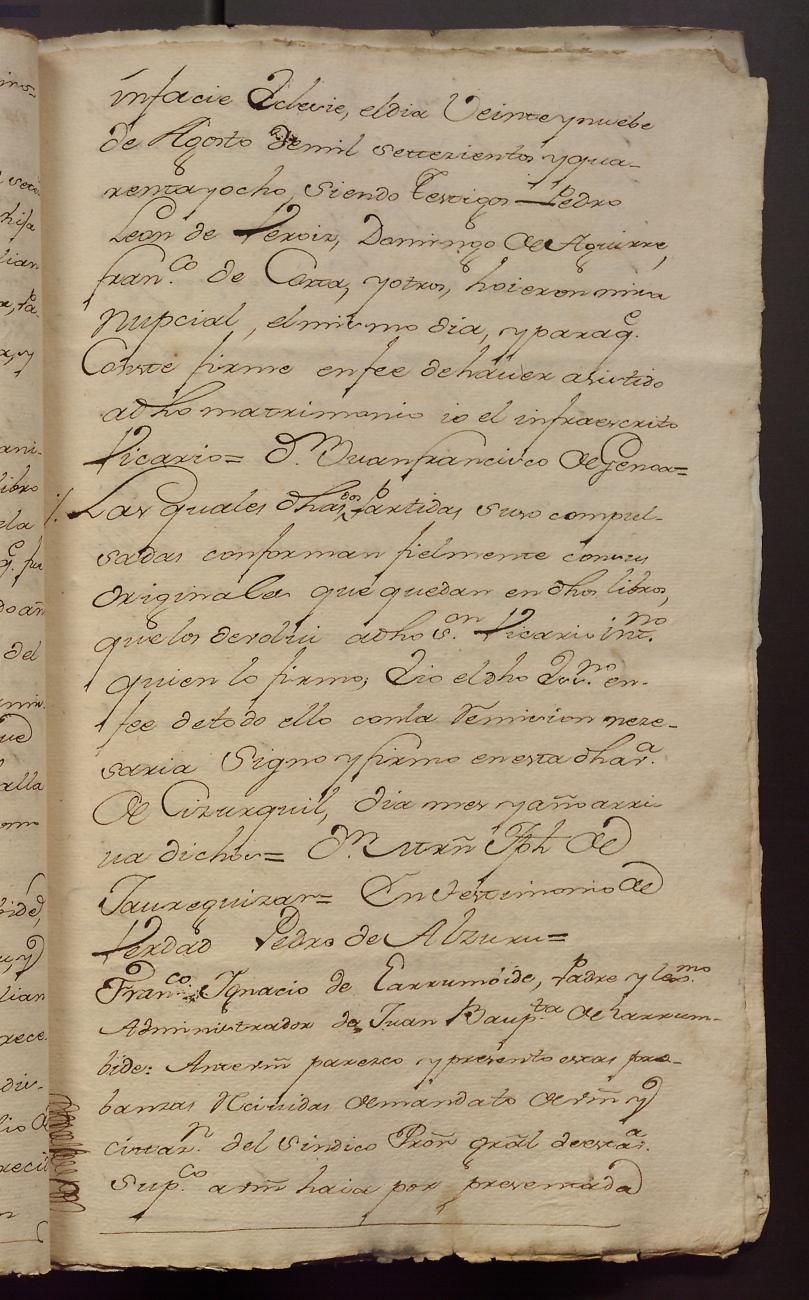 infacie Eclecie, eldia Veinte y nuebe
de Agosto demil setterientos yqua-
rentayocho, siendo Testigos Pedro
Leon de Veroiz, Domingo de Aguirre,
fran.co de Corta, yotros, hoieron misa
Nupcial, elmismo dia, yparaq.e
Conste firme enfee dehauer asistido
adho matrimonio io el infraescrito
Vicario= D.n Juanfrancisco de Genoa=
Las quales dhas dos Partidas suso compul-
sadas conforman fielmente consus
originales que quedan endhos libros,
quelos devolui adho s.on Vicario int.no
quien lo firmo, Eio eldho Ess.no en-
fee detodo ello conla Remision neze-
saria Signo yfirmo enesta dhav.a
de Cizurquil, dia mes yaño arri
ua dichos= D.n Mrñ Jph de
Jaurequizar= En testimonio de
Verdad Pedro de Alzuru=
Fran.co Ignacio de Larrumbide, Padre y lexmo
Administrador de Juan Baup.ta de Larrum-
bide: Antevm̃ parezco ypresento estas pro-
banzas Reciuidas demandato devm̃ y
cittaz.n del Sindico Prõr grãl deestav.a
Sup.co avm̃ haia por presentada